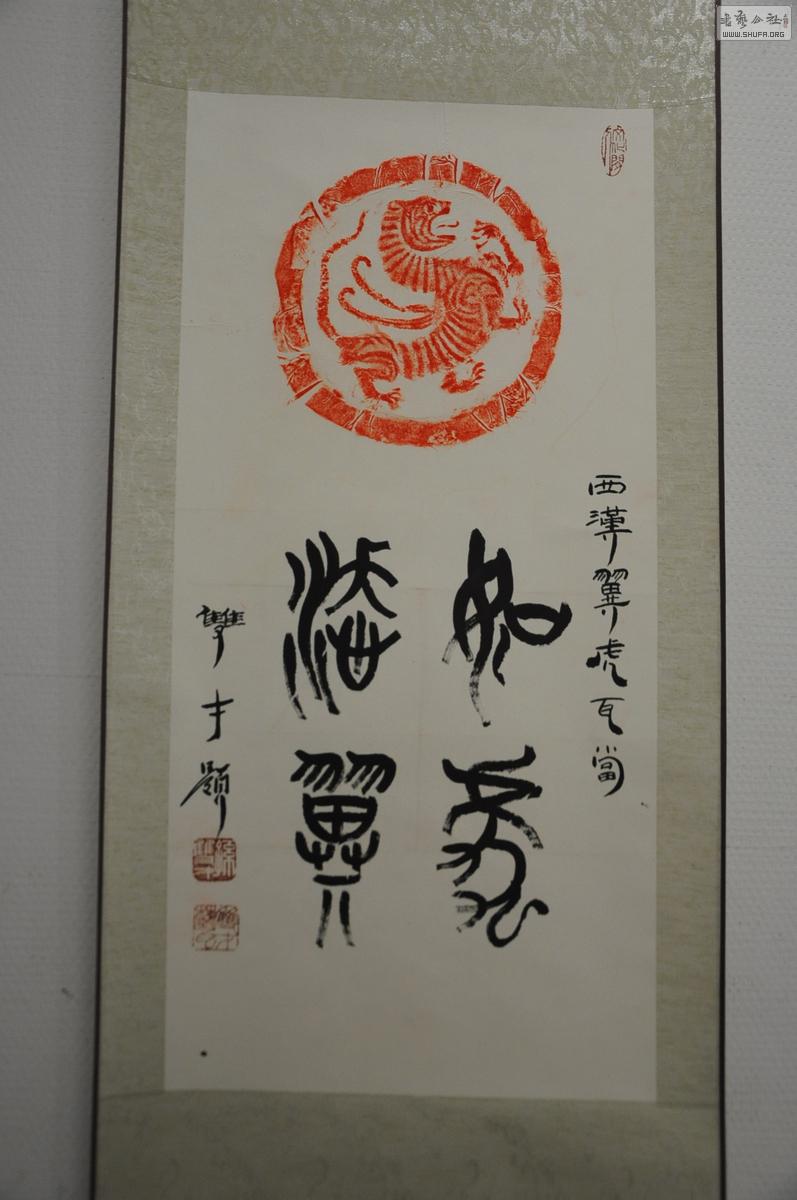 西漢翼虎瓦當
如虎
添翼
雙才題
書藝公社
WWW.SHUFA.ORG